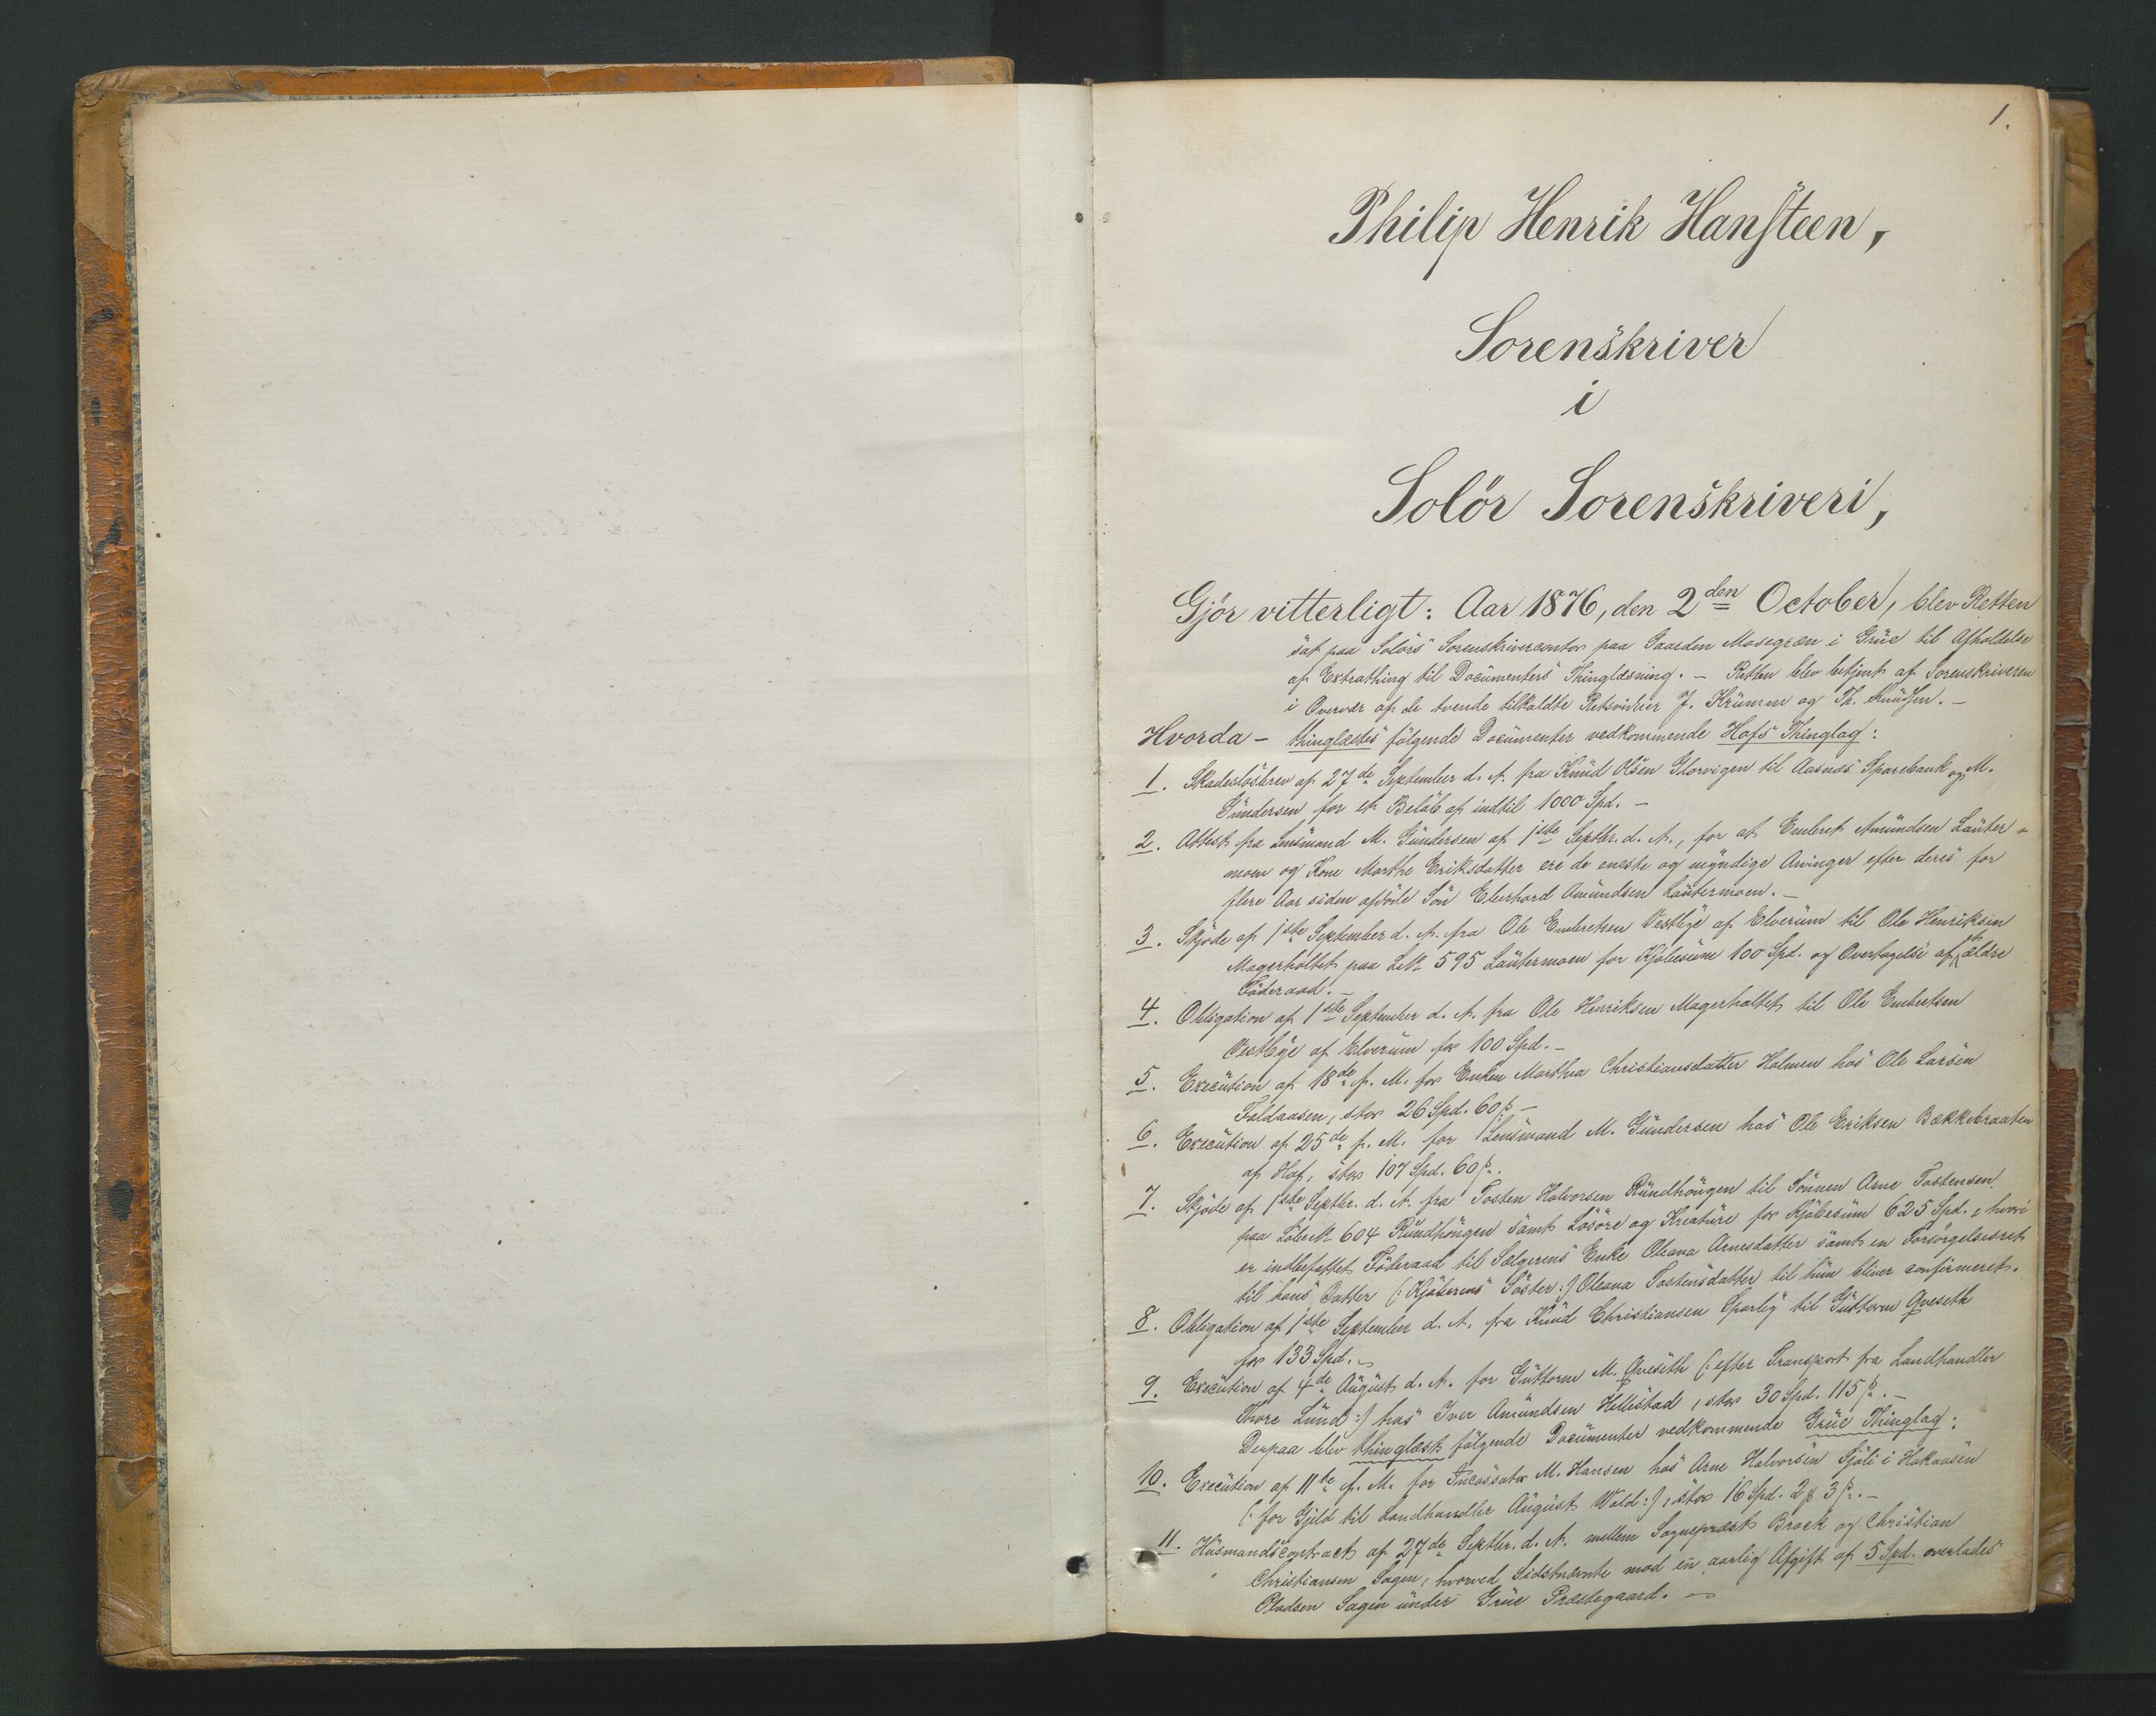 1.
Philip Henrik Hansteen,
Sorenskriver
i
Solör Sorenskriveri,
Gjör vitterligt: Aar 1876, den 2den October, blev Retten
sat paa Solörs Sorenskrivercontor paa Gaarden Masegræn i Grue til Afholdelse
af Extrathing til Documenters Thinglæsning. – Retten blev betjent af Sorenskriveren
i Overvær af de tvende tilkaldte Retsvidner J. Krumm og Th. Knudsen. –
Hvorda – thinglæstes fölgende Documenter vedkommende Hofs Thinglag:
1. Skadeslösbrev af 27de September d. A. fra Knud Olsen Glorvigen til Aasnæs Sparebank og M.
Gundersen for et Belöb af indtil 1000 Spd. –
2. Attest fra Lensmand M. Gundersen af 1ste Septbr. d. A., for at Embret Amundsen Lauter-
moen og Kone Marthe Eriksdatter ere de eneste og myndige Arvinger efter deres for
flere Aar siden afdöde Sön Eberhard Amundsen Lautermoen. –
3. Skjöde af 1ste September d. A. fra Ole Embretsen Vestbye af Elverum til Ole Henriksen
Magerholtet paa LN 595 Lautermoen for Kjöbesum 100 Spd. og Overtagelse af ældre
Föderaad. –
4. Obligation af 1ste September d. A. fra Ole Henriksen Magerholtet til Ole Embretsen
Vestbye af Elverum for 100 Spd. –
5. Execution af 18de f. M. for Enken Marthea Christiansdatter Holmen hos Ole Larsen
Faldaasen, stor 26 Spd. 60 ß –
6. Execution af 25de f. M. for Lensmand M. Gundersen hos Ole Eriksen Bækkebraaten
af Hof, stor 107 Spd. 60 ß.
7. Skjöde af 1ste Septbr. d. A. fra Tosten Halvorsen Rundhöugen til Sönnen Arne Tostensen
paa LöbeN 604 Rundhöugen samt Lösöre og Kreature for Kjöbesum 625 Spd., hvori
er indbefattet Föderaad til Sælgerens Enke Oleana Arnesdatter samt en Forsörgelsesret
til hans Datter (: Kjöberens Söster :) Oleana Tostensdatter til hun bliver confirmeret.
8. Obligation af 1ste September d. A. fra Knud Christiansen Sparby til Guttorm Qveseth
for 133 Spd. –
9. Execution af 4de August d. A. for Guttorm M. Qveseth (: efter Transport fra Landhandler
Thore Lund :) hos Iver Amundsen Hellestad, stor 30 Spd. 115 ß. –
Derpaa blev thinglæst fölgende Documenter vedkommende Grue Thinglag:
10. Execution af 11te f. M. for Incassator M. Hansen hos Arne Halvorsen Sjöli i Hakaasen
(: for Gjeld til Landhandler August Wold :), stor 16 Spd. 2 ꝶ 3 ß. –
11. Husmandscontract af 27de Septbr. d. A. mellem Sognepræst Brock og Christian
Christiansen Sagen, hvorved Sidstnævnte mod en aarlig Afgift af 5 Spd. overlades
Pladsen Sagen under Grue Præstegaard. –